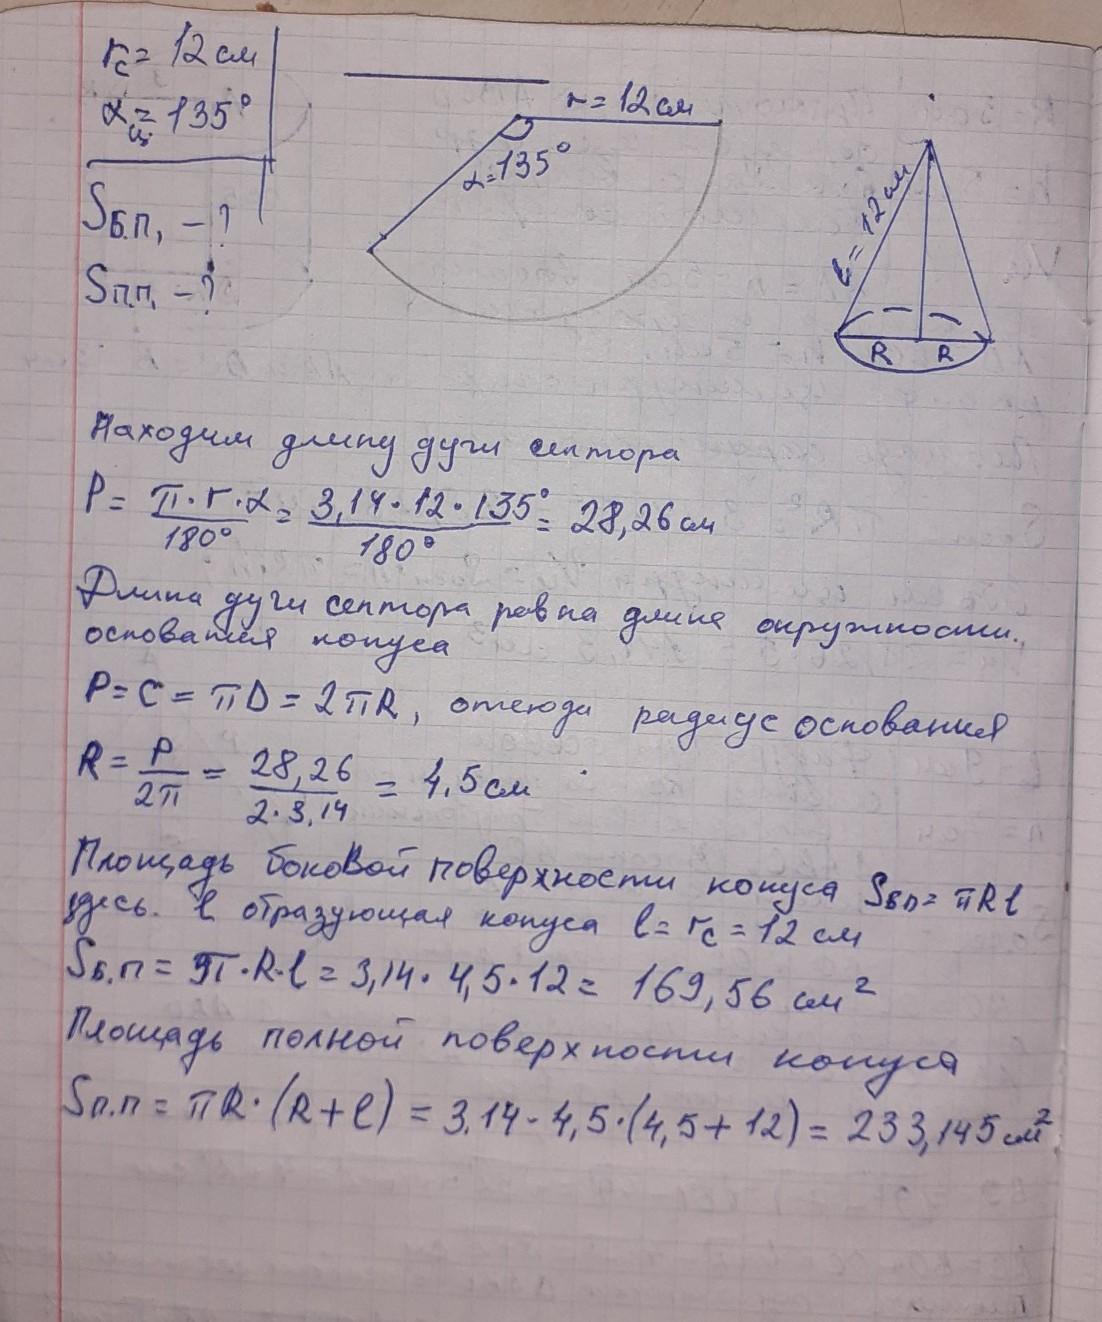 r_c = 12 см
α_ц = 135°
S_б.п. - ?
S_п.п. - ?
r = 12 см
α = 135°
l = 12 см
R R
Находим длину дуги сектора
P = π·r·α/180° = 3,14·12·135°/180° = 28,26 см
Длина дуги сектора равна длине окружности
основания конуса
P = C = πD = 2πR, отсюда радиус основания
R = P/2π = 28,26/2·3,14 = 4,5 см
Площадь боковой поверхности конуса S_бп = πRl
здесь. l образующая конуса l = r_c = 12 см
S_б.п = π·R·l = 3,14·4,5·12 = 169,56 см²
Площадь полной поверхности конуса
S_п.п = πR·(R+l) = 3.14·4,5·(4,5+12) = 233,145 см²